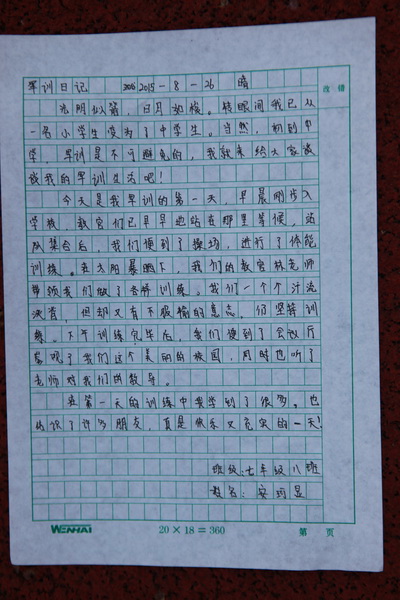 军训日记 2015-8-26 晴
改错
光阴似箭，日月如梭。转眼间我已从
一名小学生变为了中学生。当然，初到中
学，军训是不可避免的，我就来给大家谈
谈我的军训生活吧！
今天是我军训的第一天，早晨刚步入
学校，教官们已早早地站在那里等候，站
队集合后，我们便到了操场，进行了体能
训练。在太阳暴晒下，我们的教官林老师
带领我们做了各种训练。我们一个个汗流
浃背，但却又有不服输的意志，仍坚持训
练。下午训练完毕后，我们便到了会议厅
参观了我们这个美丽的校园，同时也听了
老师对我们的教导。
在第一天的训练中我学到了很多。也
认识了许多朋友，真是快乐又充实的一天！
班级：七年级八班
姓名：安
WENHAI 20×18=360 第 页